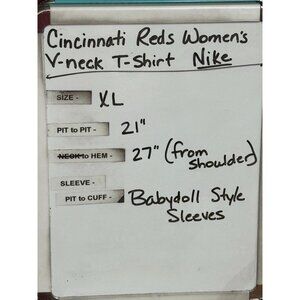 Cincinnati Reds Women's
V-neck T-Shirt Nike
SIZE - XL
PIT to PIT - 21"
NECK to HEM - 27" (from
shoulder)
SLEEVE -
PIT to CUFF - Babydoll Style
Sleeves